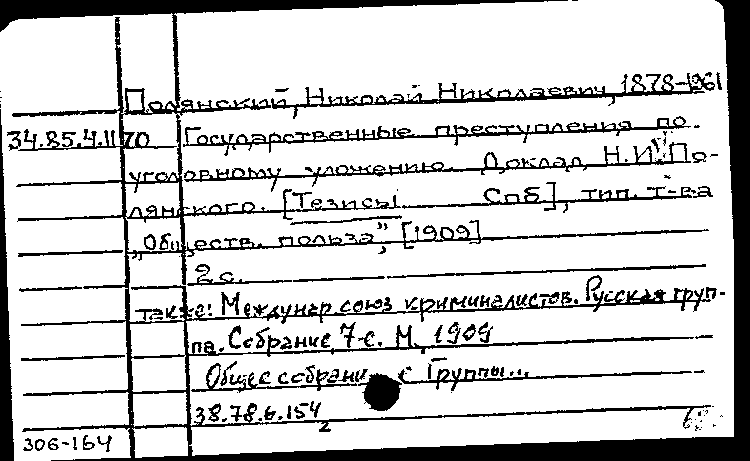 Полянский, Николай Николаевич, 1878-1961
34.85.4.1170 Государственные преступления по
уголовному уложению. Доклад Н.И. По-
лянского. [Тезисы Спб], тип. т-ва
„Обществ. польза", [1909]
2 с.
также: Междунар. союз криминалистов. Русская груп-
па. Собрание, 7-е. М., 1909
Общее собрани с Группы...
38.78.6.154
2
306-164